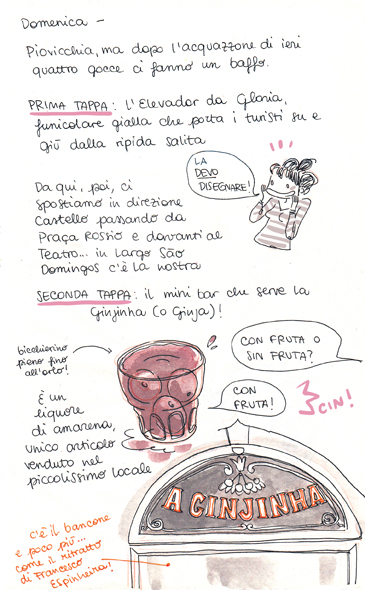 Domenica -
Piovicchia, ma dopo l'acquazzone di ieri
quattro gocce ci fanno un baffo.
PRIMA TAPPA: l'Elevador da Gloria,
funicolare gialla che porta i turisti su e
giù dalla ripida salita
LA
DEVO
DISEGNARE!
Da qui, poi, ci
spostiamo in direzione
Castello passando da
Praça Rossio e davanti al
Teatro... in Largo São
Domingos c'è la nostra
SECONDA TAPPA: il mini bar che serve la
Ginjinha (o Ginja)!
bicchierino
pieno fino
all'orlo!
CON FRUTA O
SIN FRUTA?
CON
FRUTA!
CIN!
È un
liquore
di amarena,
unico articolo
venduto nel
piccolissimo locale
A GINJINHA
c'è il bancone
e poco più...
come il ritratto
di Francesco
Espinheira!